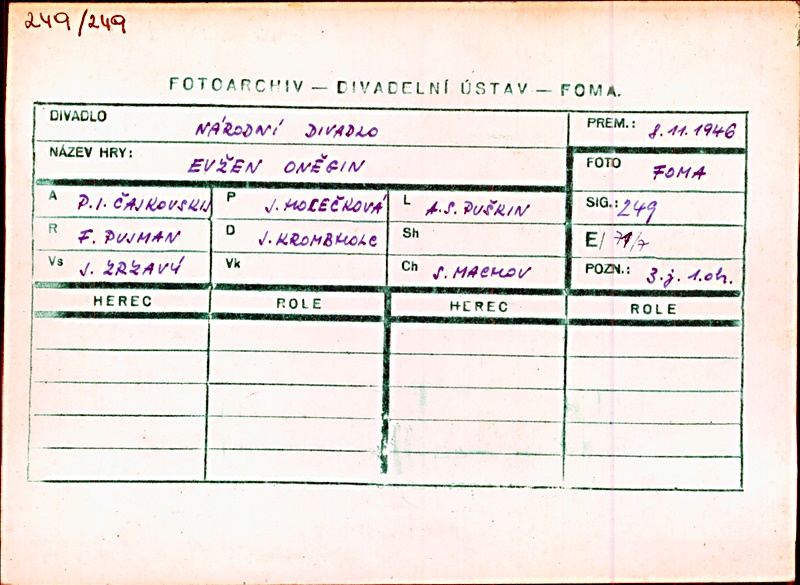 249/249
FOTOARCHIV — DIVADELNÍ ÚSTAV — FOMA.
DIVADLO NÁRODNÍ DIVADLO PREM.: 8.11.1946
NÁZEV HRY: EVŽEN ONĚGIN FOTO FOMA
A P.I. ČAJKOVSKIJ P J. HOLEČKOVÁ L A.S. PUŠKIN SIG.: 249
R F. PUJMAN D J. KROMBHOLC Sh E/ 71/7
Vs J. ZRZAVÝ Vk Ch S. MACHOV POZN.: 3.j. 1.ob.
HEREC ROLE HEREC ROLE